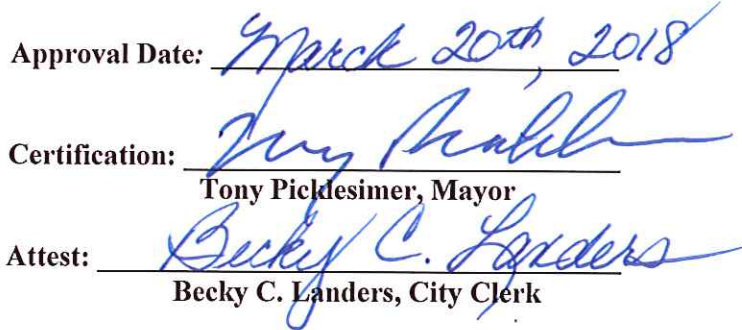 Approval Date: March 20th, 2018
Certification: Tony Picklesimer
Tony Picklesimer, Mayor
Attest: Becky C. Landers
Becky C. Landers, City Clerk